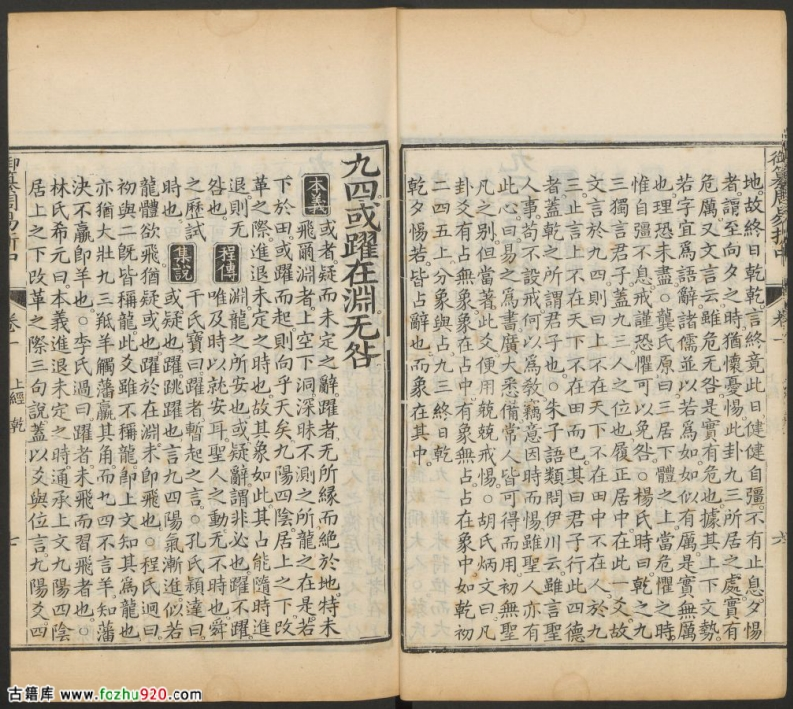 地故終日乾乾言終竟此日健健自彊不有止息夕惕
者謂至向夕之時猶懷憂惕此卦九三所居之處實有
危厲又文言云雖危无咎是實有危也據其上下文勢
若字宜爲語辭諸儒並以若爲如如似有厲是實无厲
也理恐未盡○龔氏原曰三居下體之上當危懼之時
惟自彊不息戒謹恐懼可以免咎○楊氏時曰乾之九
三獨言君子蓋九三人之位也履正居中在此一爻故
文言於九四則曰上不在天下不在田中不在人於九
三止言上不在天下不在田而已其曰君子行此四德
者蓋乾之所謂君子也○朱子語類問伊川云雖言聖
人事苟不設戒何以爲教竊意因時而惕雖聖人亦有
此心曰易之爲書廣大悉備常人皆可得而用初無聖
凡之別但當著此爻便用兢兢戒惕○胡氏炳文曰凡
卦爻有占無象象在占中有象無占占在象中如乾初
二四五上分象與占九三終日乾
乾夕惕若皆占辭也而象在其中
御纂周易折中
卷一
上經 乾
六
九四或躍在淵无咎
本義 或者疑而未定之辭躍者无所緣而絕於地特未
飛爾淵者上空下洞深昧不測之所龍之在是若
下於田或躍而起則向乎天矣九陽四陰居上之下改
革之際進退未定之時也故其象如此其占能隨時進
退則无
咎也 程傳 淵龍之所安也或疑辭謂非必也躍不躍
唯及時以就安耳聖人之動无不時也舜
之歷試
時也 集說 干氏寶曰躍者暫起之言○孔氏穎達曰
或疑也躍跳躍也言九四陽氣漸進似若
龍體欲飛猶疑或也躍於在淵未卽飛也○程氏迥曰
初與二旣皆稱龍此爻雖不稱龍卽上文知其爲龍也
亦猶大壯九三羝羊觸藩羸其角而九四不言羊知藩
決不羸卽羊也○李氏過曰躍者未飛而習飛者也○
林氏希元曰本義進退未定之時通承上文九陽四陰
居上之下改革之際三句說蓋以爻與位言九陽爻四
御纂周易折中
卷一
上經 乾
七
古籍库 www.fozhu920.com